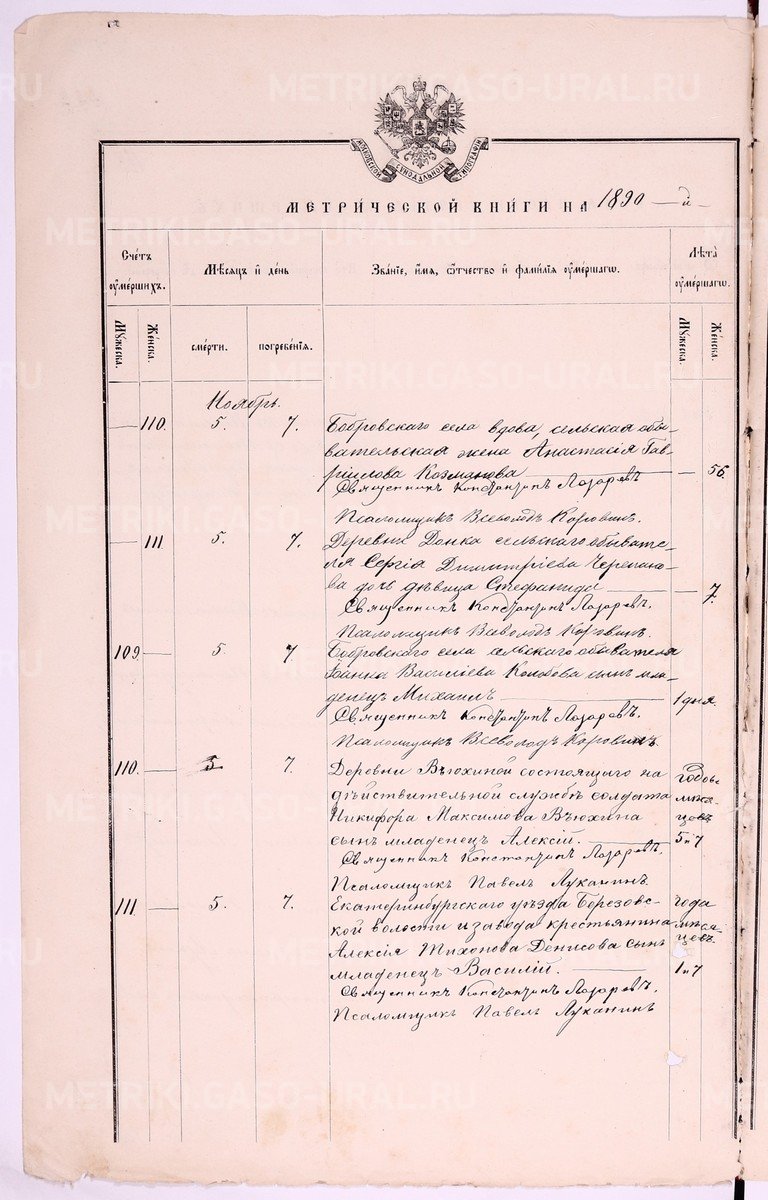 METRIKI.GASO-URAL.RU
МОСКОВСКОЙ СѴНОДАЛЬНОЙ ТИПОГРАФІИ
МЕТРИЧЕСКОЙ КНИГИ НА 1890 — й —
Счетъ оумершихъ.
Мѣсяцъ и день
Званіе, имя, отчество и фамилія оумершагѡ.
Лѣта оумершагѡ.
Мужеска.
Женска.
смерти.
погребенія.
Мужеска.
Женска.
Ноябрь.
— 110. 5. 7. Бобровскаго села вдова, сельская обы-
вательская жена Анастасія Гав-
ріилова Козманова — — 56.
Священникъ Константинъ Лазаревъ
Псаломщикъ Всеволодъ Коровинъ.
— 111 5. 7. Деревни сельскаго обывате-
ля Сергія Димитріева Черепано-
ва дочь дѣвица Стефанида — — 7.
Священникъ Константинъ Лазаревъ.
Псаломщикъ Всеволодъ Коровинъ.
109 — 5 7 Бобровскаго села сельскаго обывателя
Іоанна Василіева сынъ мла-
денецъ Михаилъ — 1 дня.
Священникъ Константинъ Лазаревъ.
Псаломщикъ Всеволодъ Коровинъ.
110. — 5 7. Деревни Вьюхиной состоящаго на
дѣйствительной службѣ солдата
Никифора Максимова Вьюхина
сынъ младенецъ Алексій. — 5 и 7
Священникъ Константинъ Лазаревъ.
Псаломщикъ Павелъ Луканинъ.
111 — 5. 7. Екатеринбургскаго уѣзда Березовс- года
кой волости и завода крестьянина мѣся-
Алексія Тихонова Денисова сынъ цевъ
младенецъ Василій. — 1 и 7
Священникъ Константинъ Лазаревъ.
Псаломщикъ Павелъ Луканинъ